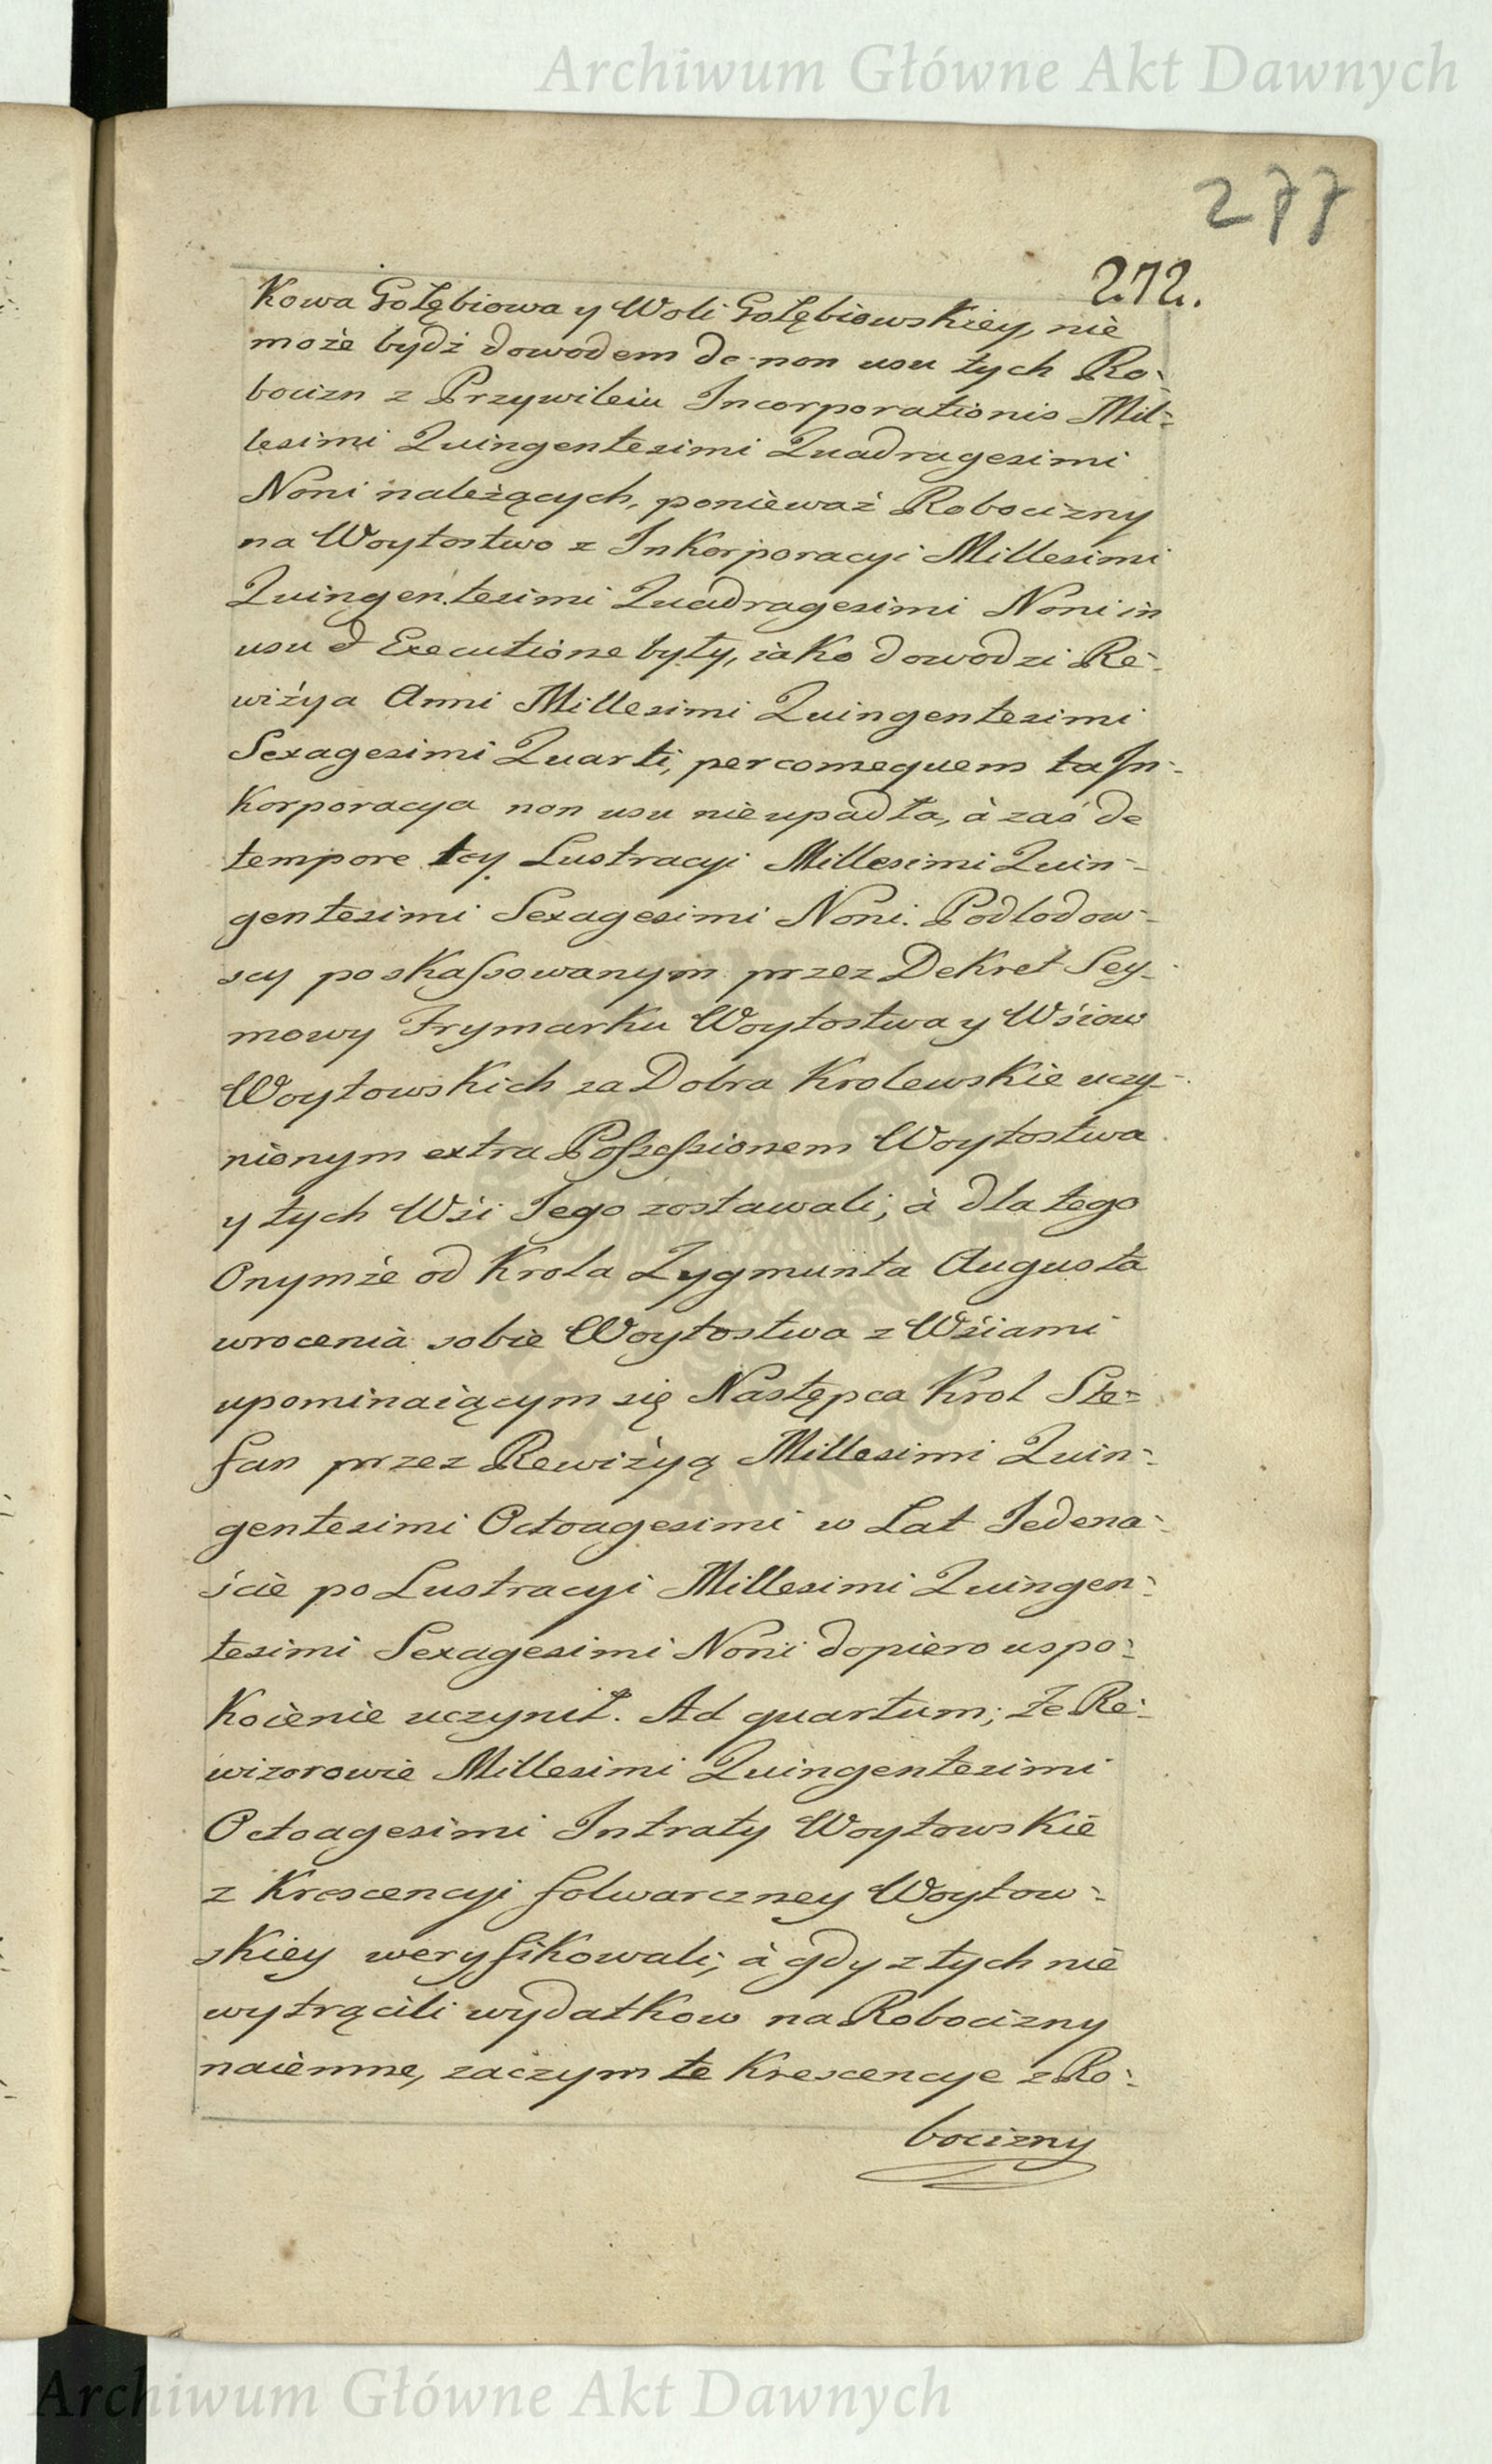 Archiwum Główne Akt Dawnych
277
272.
Kowa Gołębiowa y Woli Gołębiowskiey, nie
może bydź dowodem de non usu tych Ro-
bocizn z Przywileiu Incorporationis Mil-
lesimi Quingentesimi Quadragesimi
Noni należących, ponieważ Robocizny
na Woytostwo z Inkorporacyi Millesimi
Quingentesimi Quadragesimi Noni in
usu et Executione były, iako dowodzi Re-
wiżya Anni Millesimi Quingentesimi
Sexagesimi Quarti, per comequem ta In-
korporacya non usu nie upadła, à zaś de
tempore tey Lustracyi Millesimi Quin-
gentesimi Sexagesimi Noni. Podlodow-
scy po skassowanym przez Dekret Sey-
mowy Frymarku Woytostwa y Wśiow
Woytowskich za Dobra Krolewskie uczy-
nionym extra Possessionem Woytostwa
y tych Wśi Jego zostawali; à dla tego
Onymże od Krola Zygmunta Augusta
wrocenia sobie Woytostwa z Wśiami
upominaiącym się Następca Krol Ste-
fan przez Rewiżyą Millesimi Quin-
gentesimi Octoagesimi w Lat Jedena-
ście po Lustracyi Millesimi Quingen-
tesimi Sexagesimi Noni dopiero uspo-
koienie uczynił. Ad quartum; że Re-
wizorowie Millesimi Quingentesimi
Octoagesimi Intraty Woytowskie
z Krescencyi folwarczney Woytow-
skiey weryfikowali; à gdy z tych nie
wytrącili wydatkow na Robocizny
naiemne, zaczym te Krescencye z Ro-
bocizny
Archiwum Główne Akt Dawnych